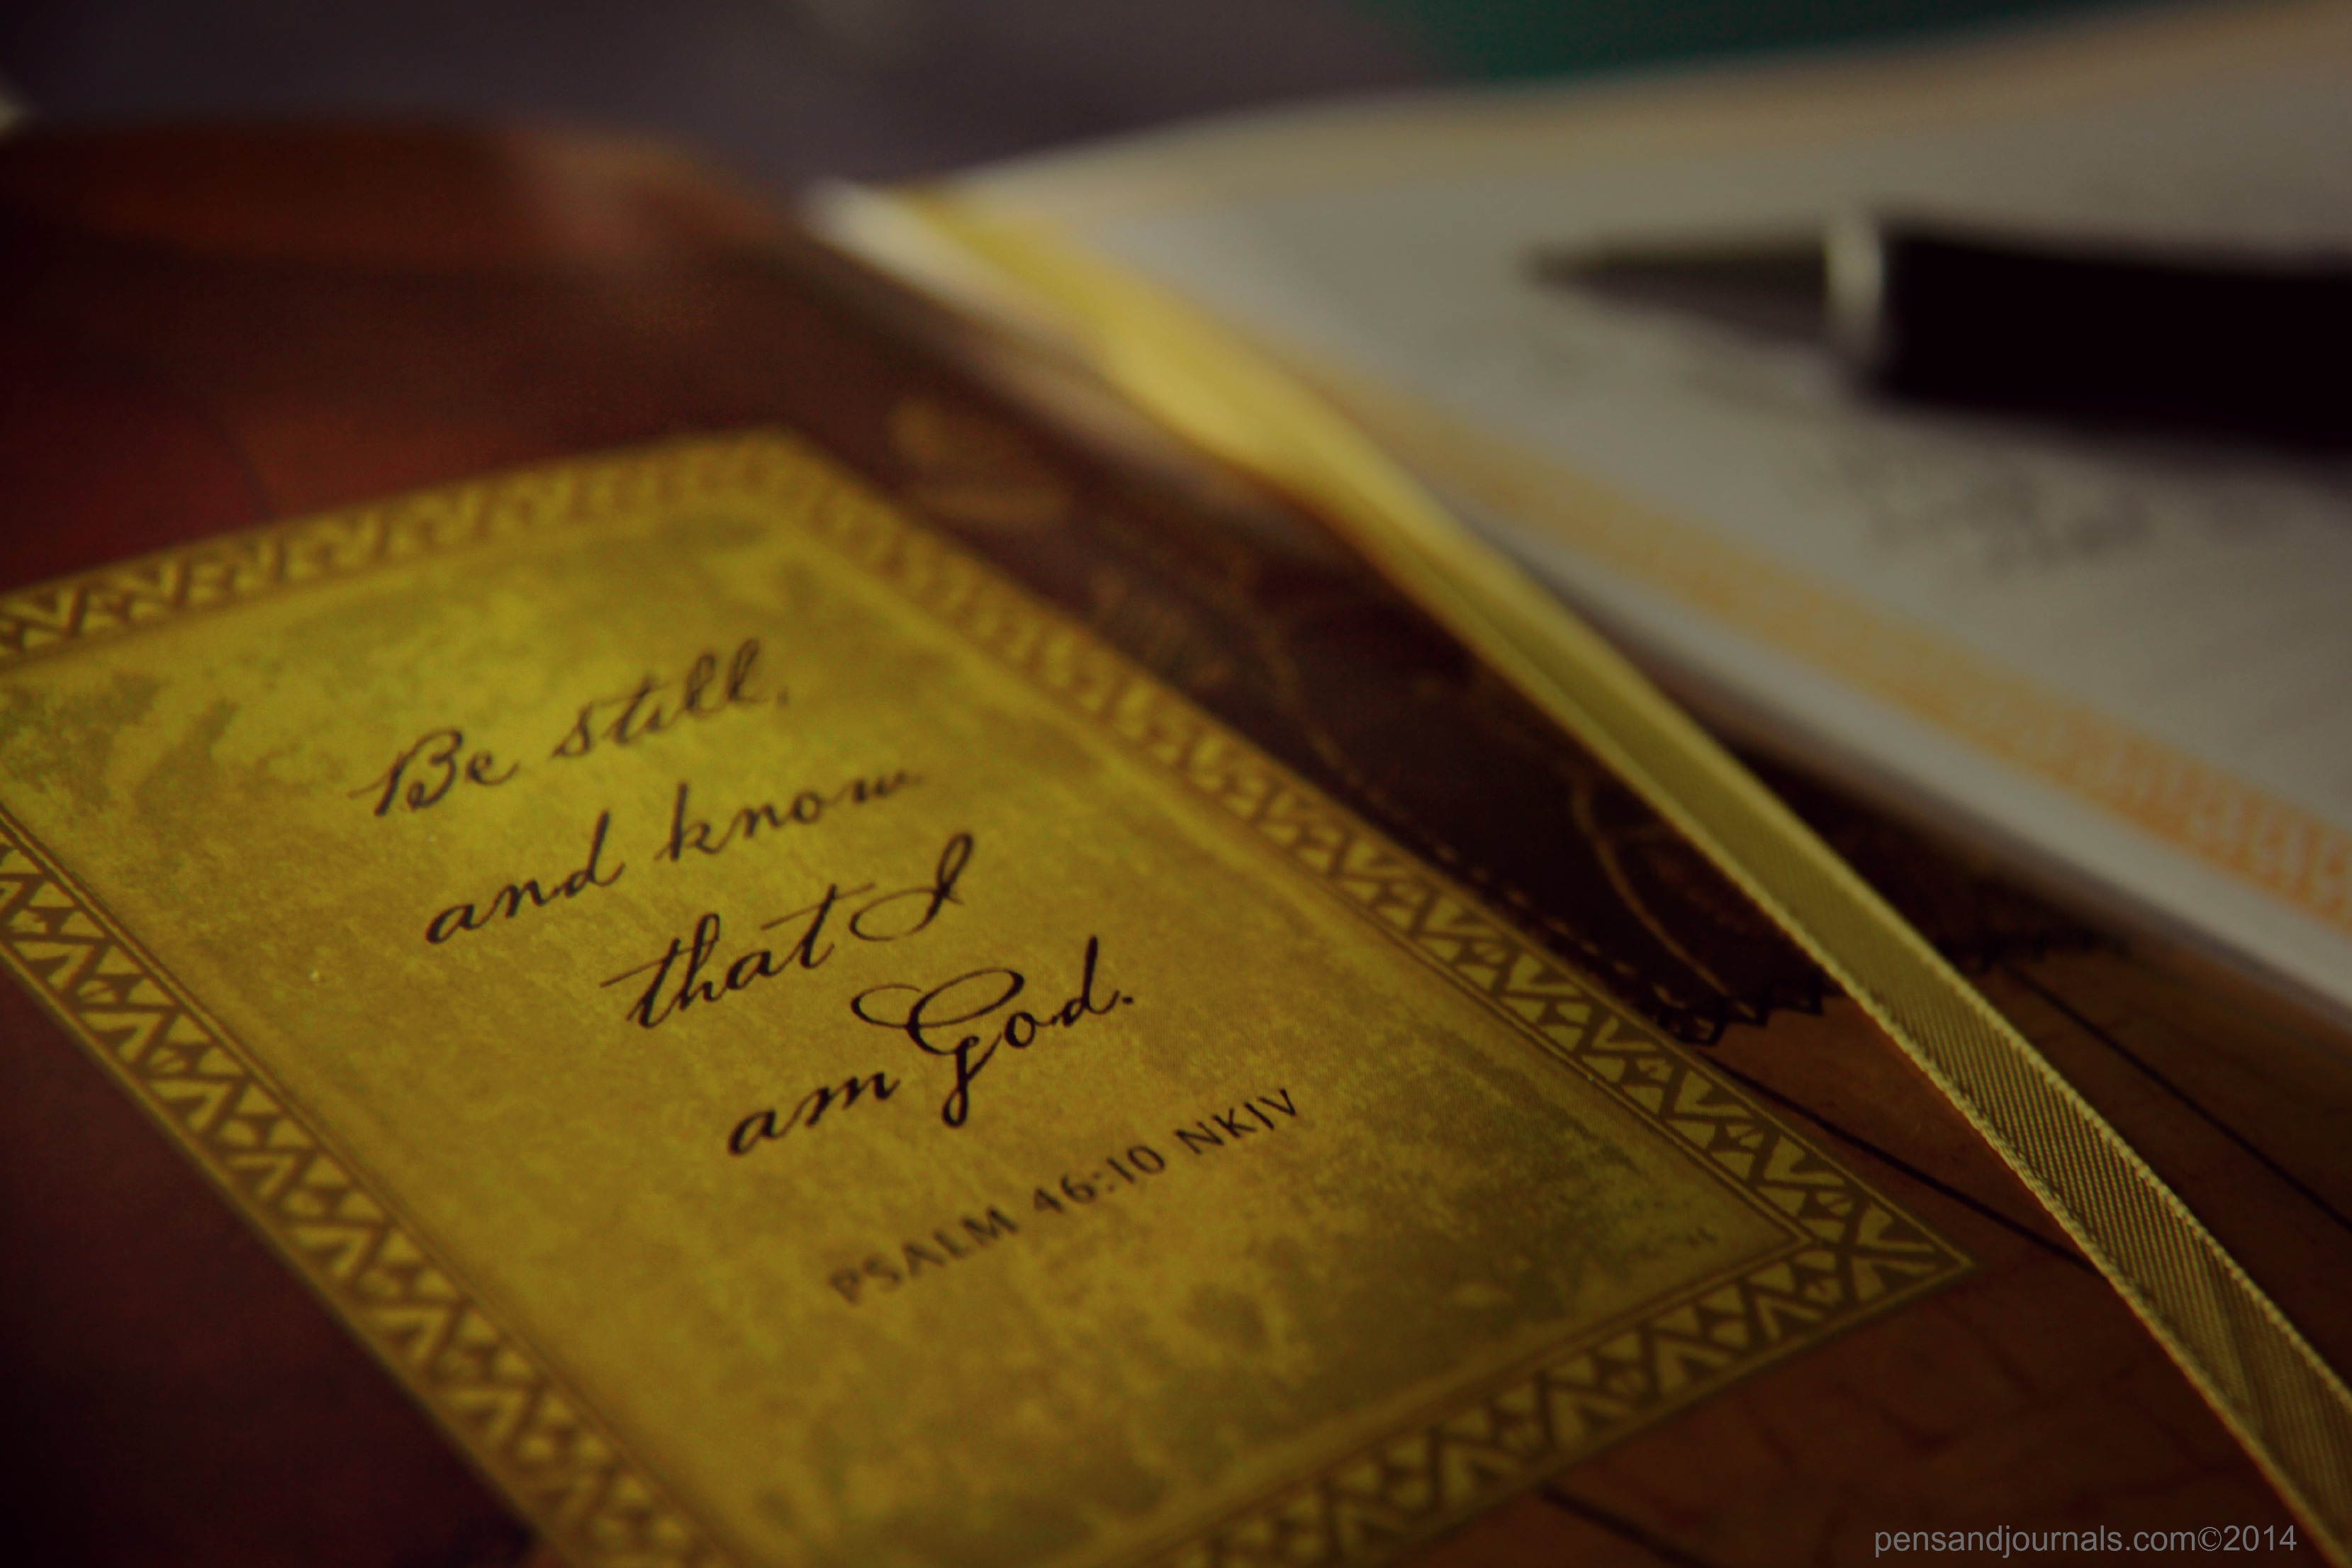 Be still,
and know
that I
am God.
PSALM 46:10 NKJV
pensandjournals.com©2014